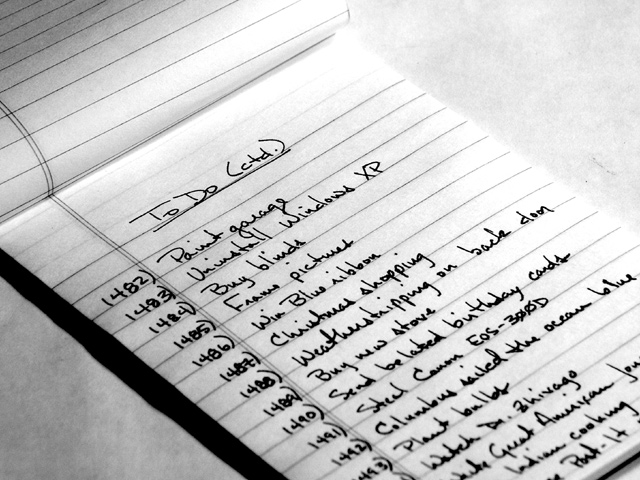 To Do (ctd.)
1482) Paint garage
1483) Uninstall Windows XP
1484) Buy blinds
1485) Frame pictures
1486) Win Blue ribbon
1487) Christmas shopping
1488) Weatherstripping on back door
1489) Buy new stove
1490) Send belated birthday cards
1491) Steal Canon EOS-300D
1492) Columbus sailed the ocean blue
1493) Plant bulbs
Watch Dr Zhivago
Great American
Indian cooking
Post-It